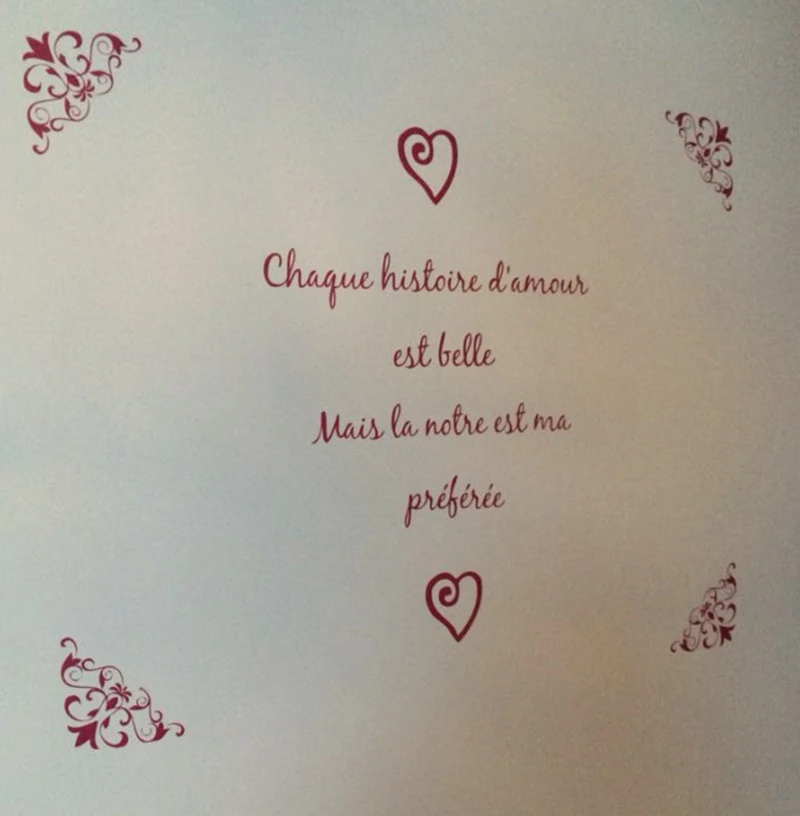 Chaque histoire d'amour
est belle
Mais la notre est ma
préférée